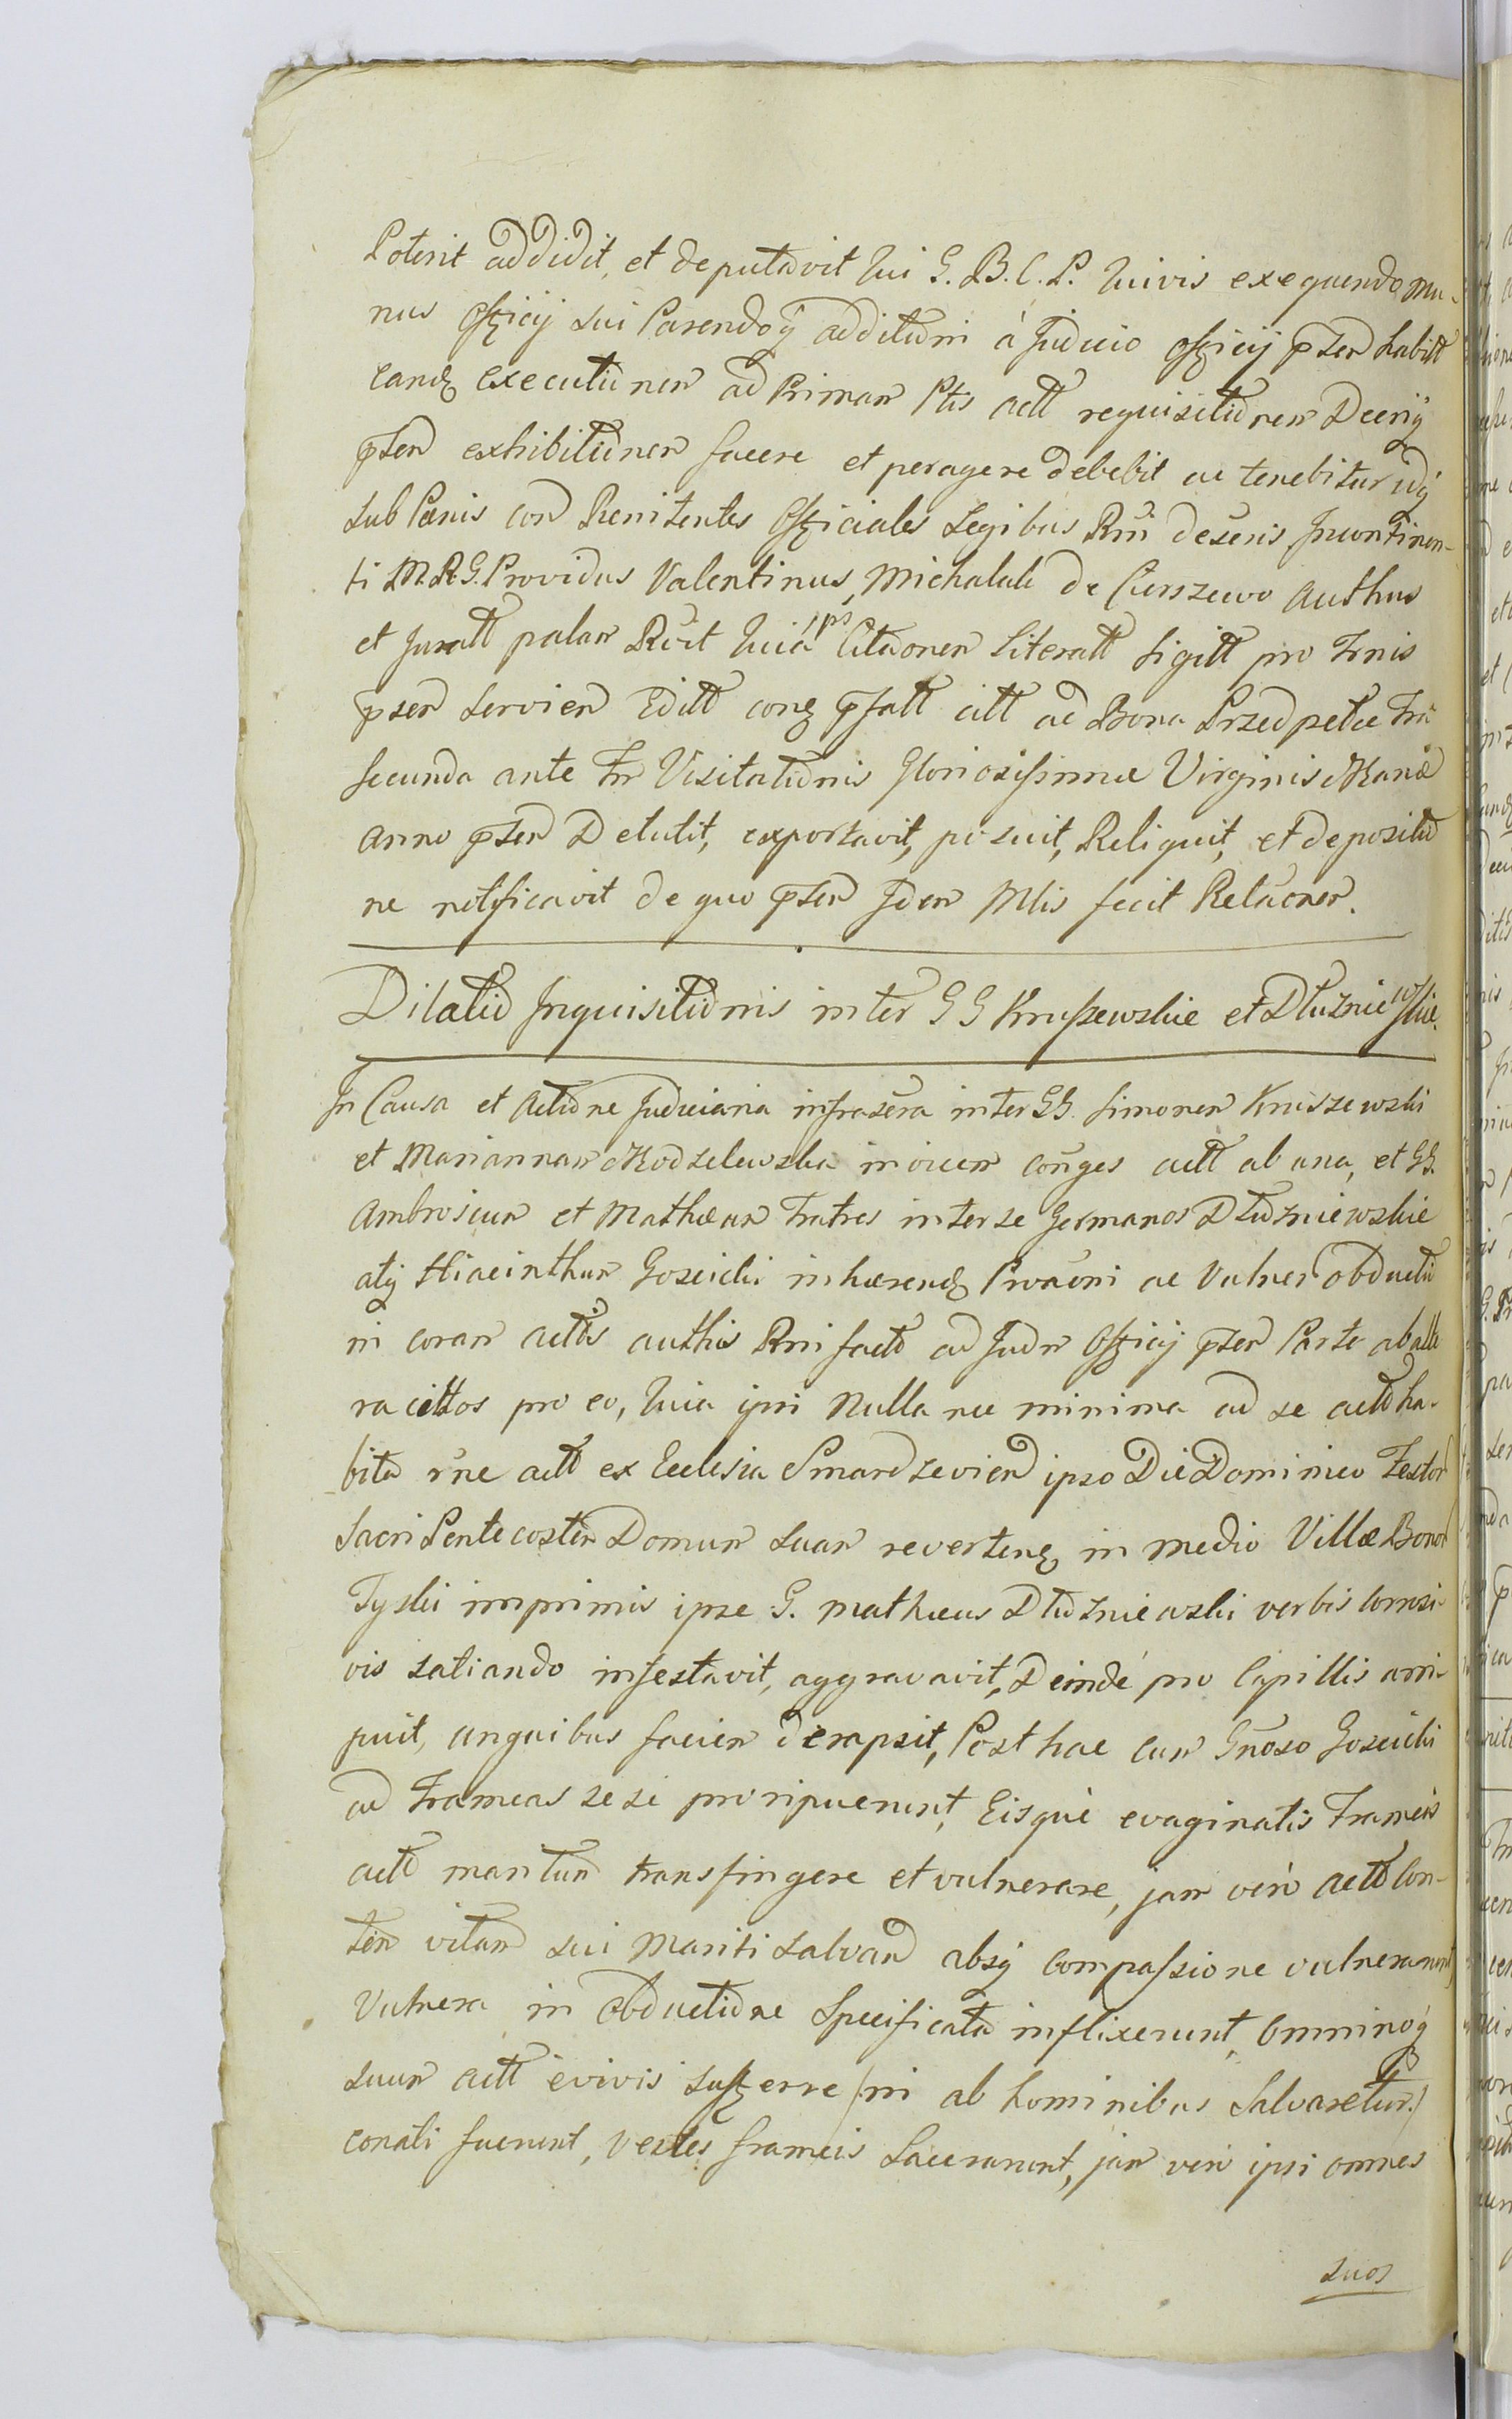 Poterit addidit, et deputavit qui G. B. C. P. quivis exequendo mu-
nus officij sui Parendoq additum à Judicio officij pnter habitt
eandq executionem ad Primam Ptis actt requisitionem Decriq
pnter exhibitionem facere et peragere debebit ac tenebitur idq
sub Paenis con Renitentes Officiales Legibus Rni deseris Incontinen-
ti M.R.G. Providus Valentinus Michalak de Cierszewo Authus
et Juratt palam Rcit quia ips Citaonem Literatt Sigitt pro Trnis
pnser servien Editt conq pfatt citt ad Bona Przedpelce Fria
secunda ante Fm Visitationis Gloriosissimae Virginis Mariae
anno pnter Detulit, exportavit, posuit, Reliquit, et depositio
ne notificavit de quo pnter Idem Mlis fecit Relaonem.
Dilatio Inquisitionis inter GG Kruszewskie et Dłużniewskie.
In Causa et Actione Judiciaria infrascra inter GG. Simonem Kruszewski
et Mariannam Modzelewska invicem conges actt ab una, et GG.
Ambrosium et Mathaeum Fratres inter se Germanos Dłużniewskie
atq Hiacinthum Goscicki inhaerendq Prottaoni ac Vulner obductio
ni coram actis authis Rni facto ad Judm Officij pnter Parte ab alte
ra cittos pro eo, quia ipsi Nulla nec minima ad se actto ha-
bita rne actt ex Ecclesia Smardzevien ipso Die Dominico Festor
Sacri Pentecosten Domum suam revertenq in medio Villae Bonor
Tyski imprimis ipse G. Mathaeus Dłużniewski verbis corrosi-
vis satiando infestavit, aggravavit, Deindé pro Capillis arri-
puit, unguibus faciem derapsit, Post hac cum Gnoso Goscicki
ad Frameas sese proripuerunt, Eisque evaginatis Frameis
actto maritum transfingere et vulnerare, jam veró actto Con-
ten vitam sui Mariti salvand absq compassione vulnerarunt
Vulnera in Obductione Specificata inflixerunt, Omninoq
suum actt è vivis sufferre /:ni ab hominibus Salvaretur:/
conati fuerunt, Vestes frameis Lacerarunt, jam vero ipsi omnes
suos